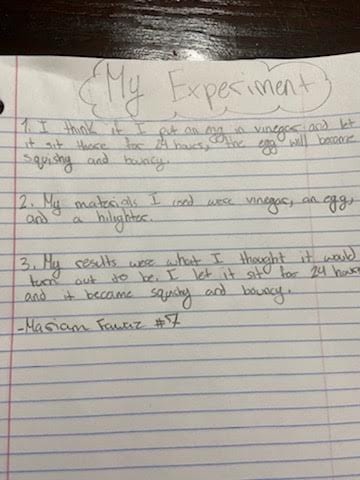 My Experiment
1. I think if I put an egg in vinegar and let
it sit there for 24 hours, the egg will become
squishy and bouncy.
2. My materials I used were vinegar, an egg,
and a hilighter.
3. My results were what I thought it would
turn out to be. I let it sit for 24 hours
and it became squishy and bouncy.
-Mariam Fawaz #7